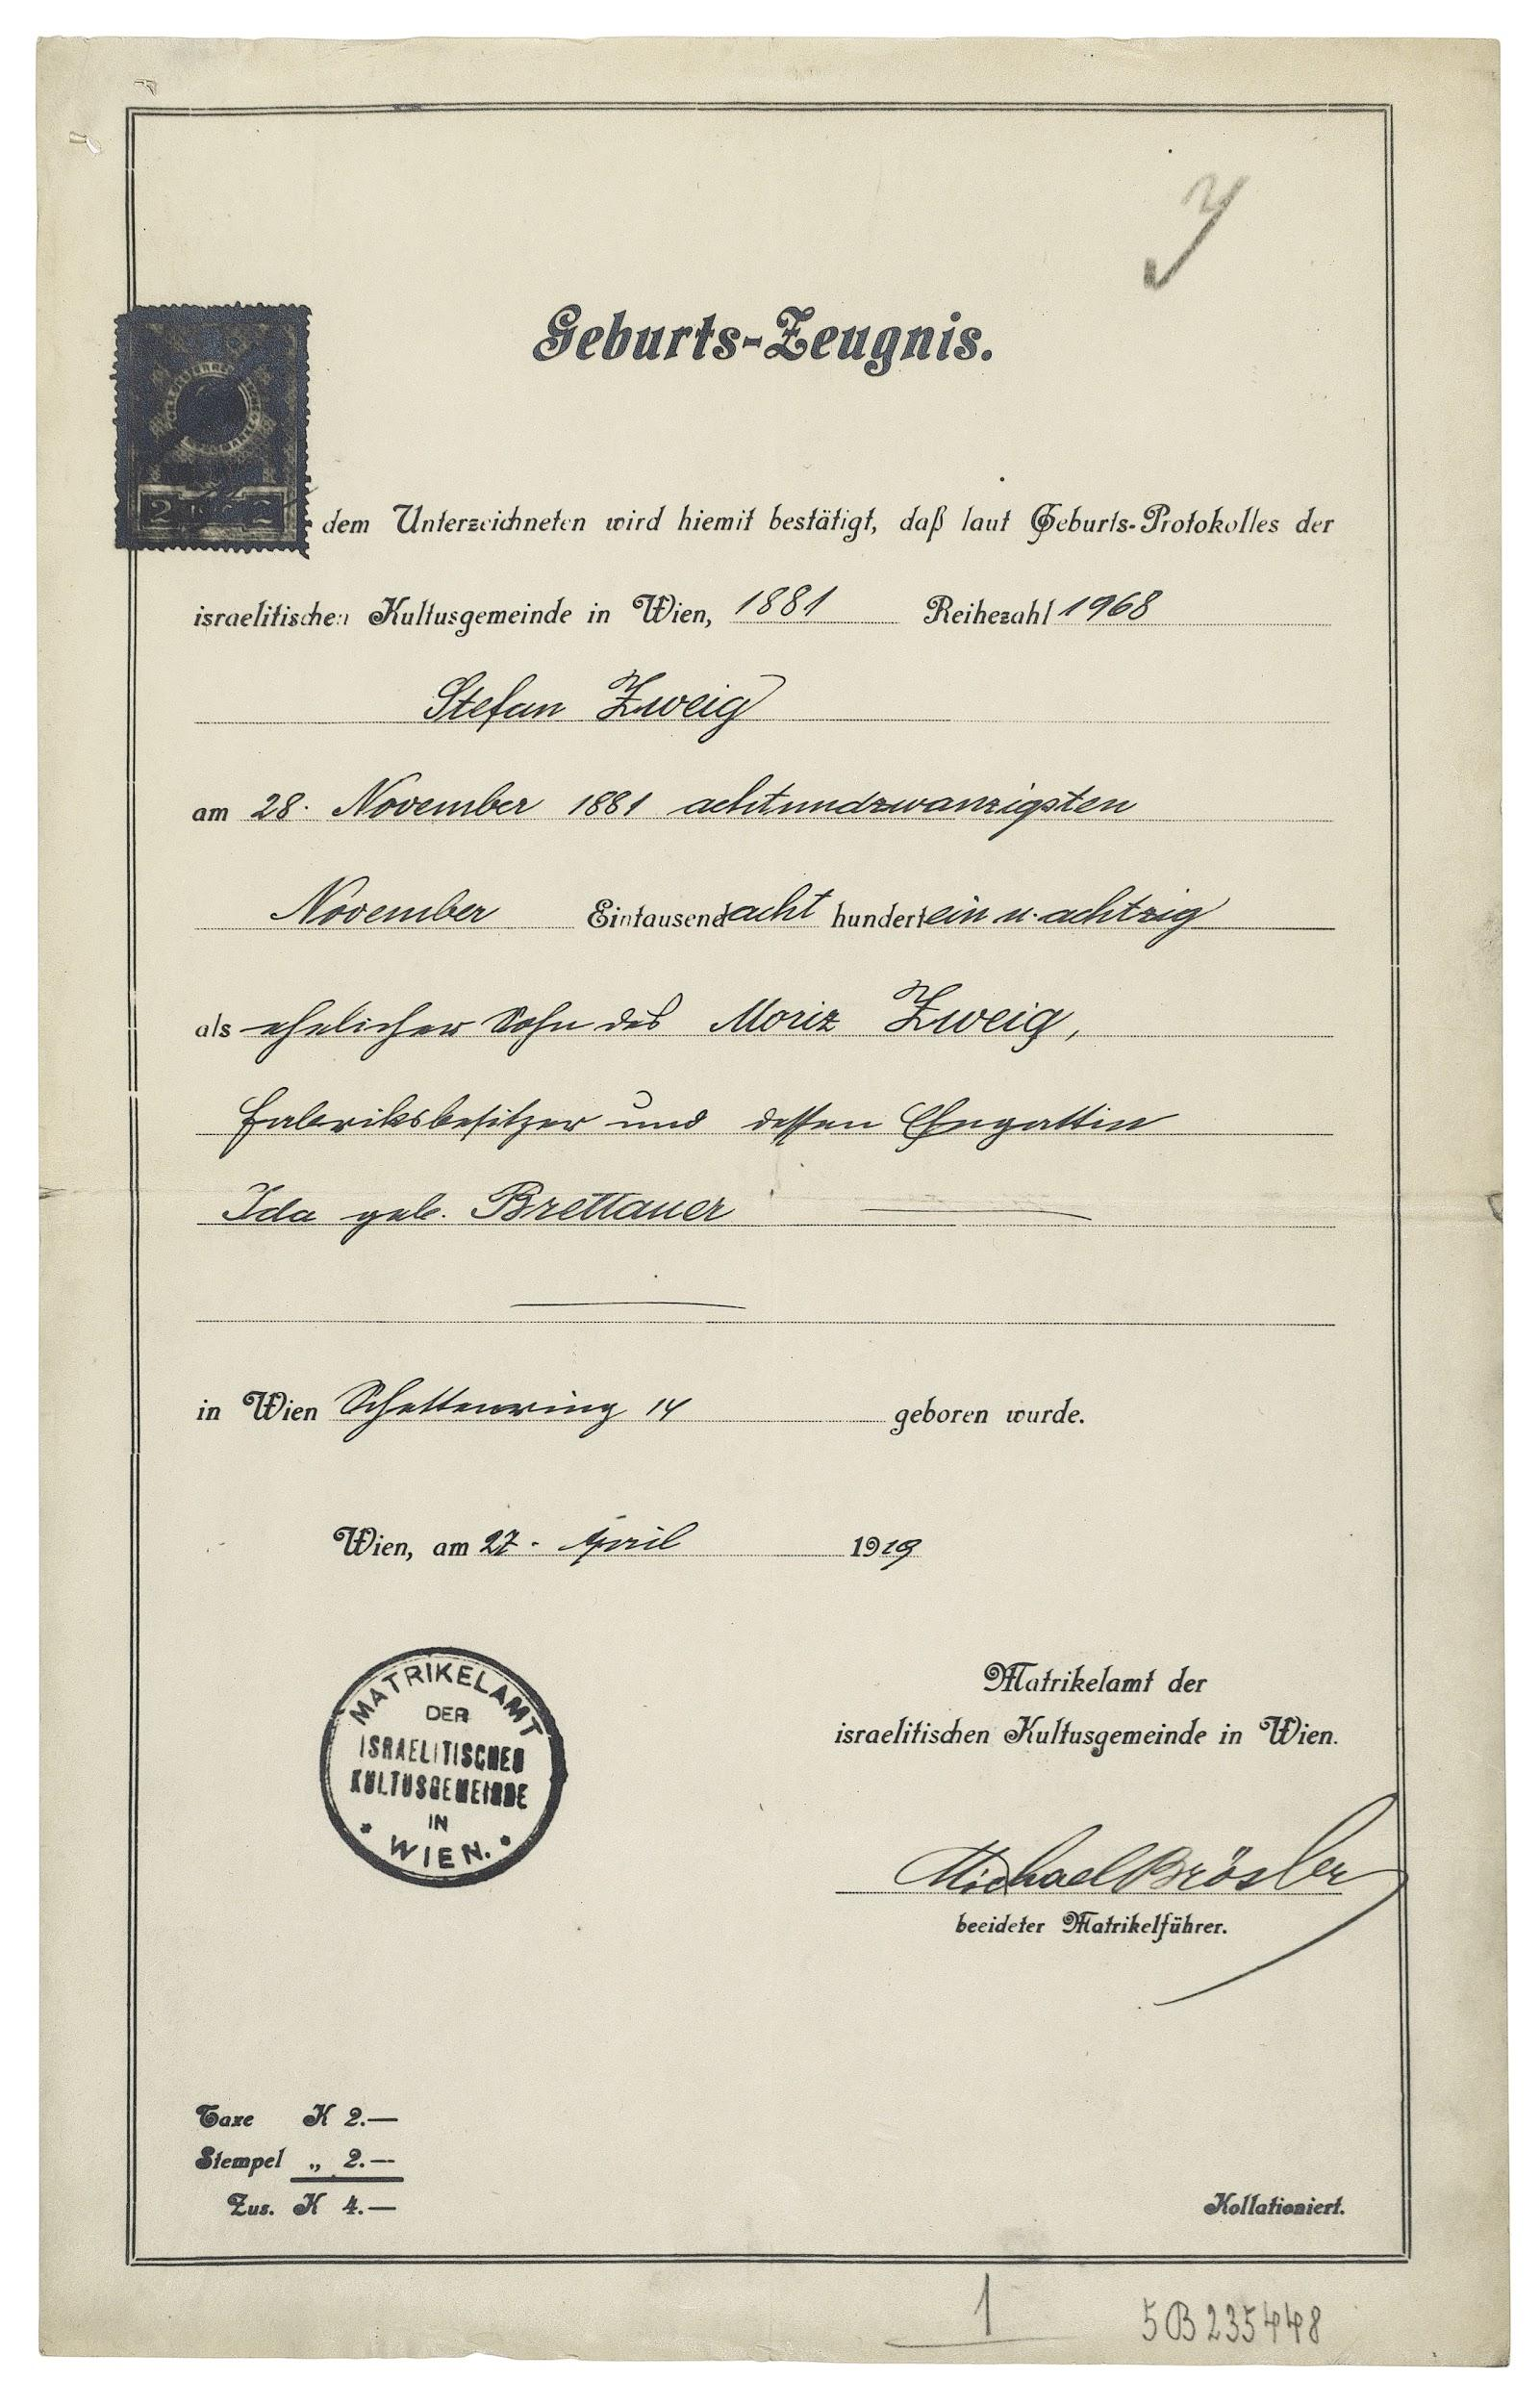 Geburts-Zeugnis.
dem Unterzeichneten wird hiemit bestätigt, daß laut Geburts-Protokolles der
israelitischen Kultusgemeinde in Wien, 1881 Reihezahl 1968
Stefan Zweig
am 28. November 1881 achtundzwanzigsten
November Eintausend acht hundert ein u. achtzig
als ehelicher Sohn des Moriz Zweig,
Fabriksbesitzer und dessen Ehegattin
Ida geb. Brettauer
in Wien Schottenring 14 geboren wurde.
Wien, am 27. April 1919
MATRIKELAMT
DER
ISRAELITISCHEN
KULTUSGEMEINDE
IN
WIEN.
Matrikelamt der
israelitischen Kultusgemeinde in Wien.
Michael Brösler
beeideter Matrikelführer.
Taxe K 2.—
Stempel „ 2.—
Zus. K 4.—
Kollationiert.
1
5B235448